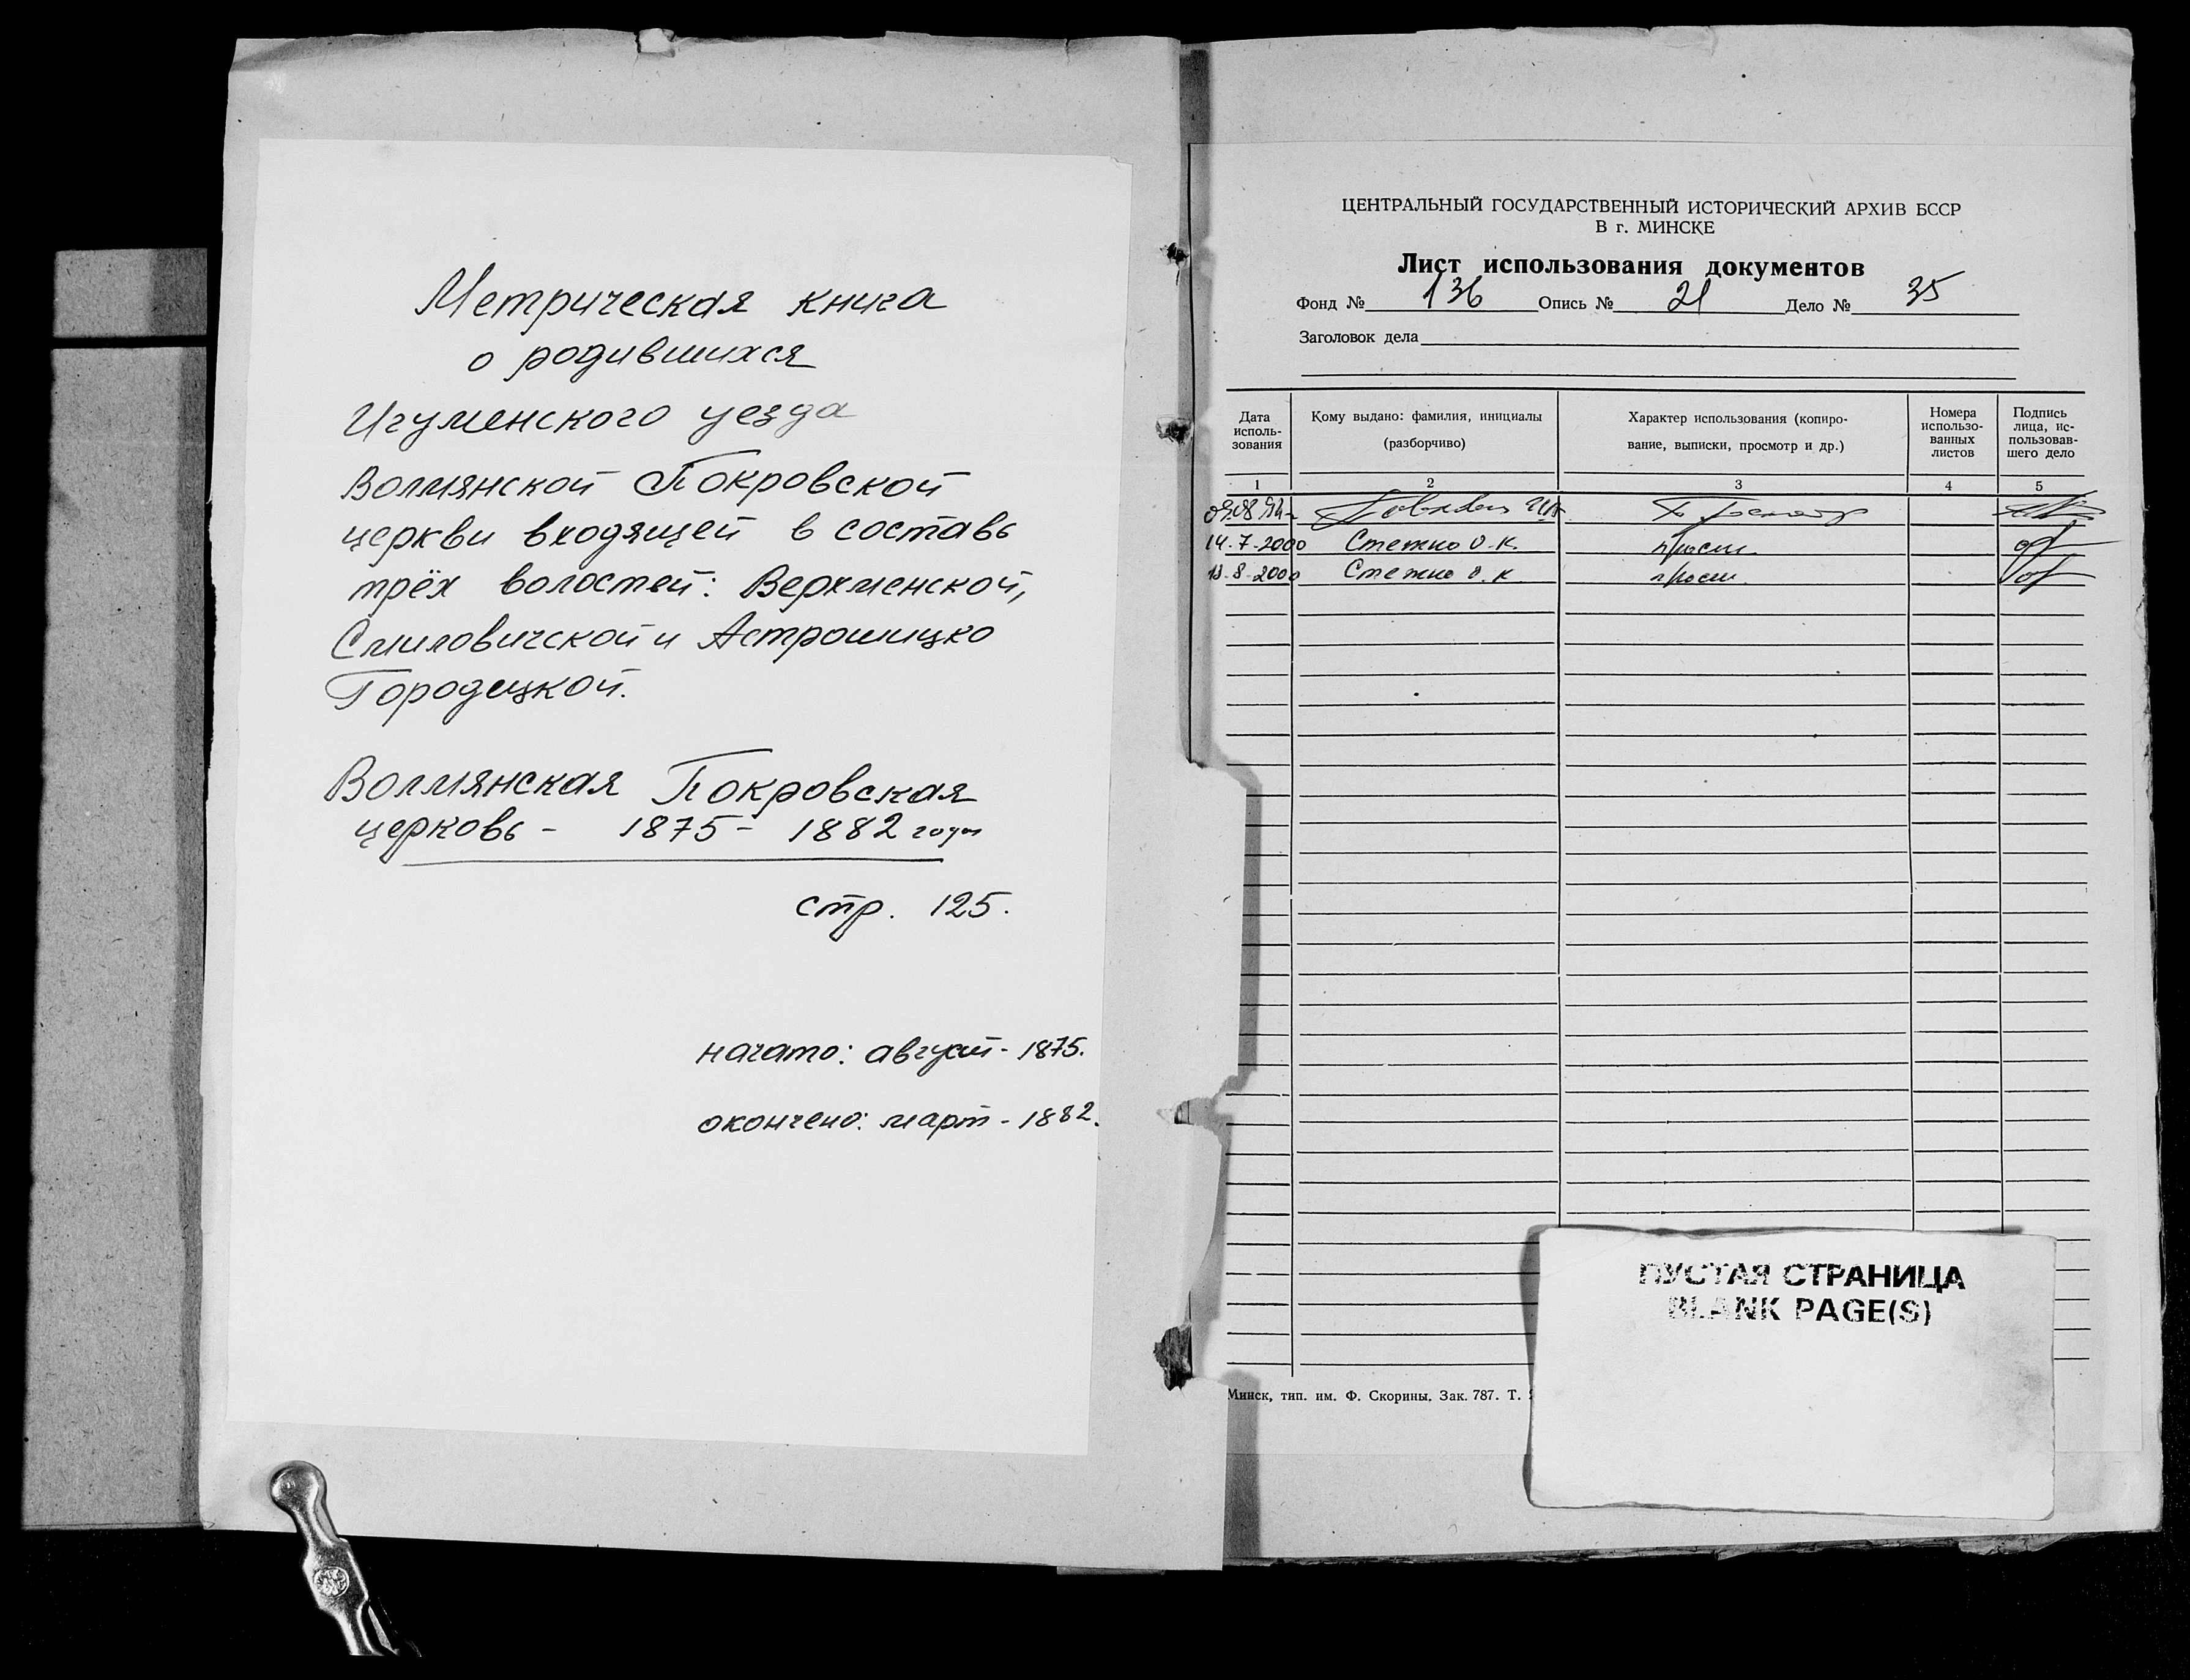 Метрическая книга
о родившихся
Игуменского уезда
Волмянской Покровской
церкви входящей в составь
трёх волостей: Верхменской,
Смиловичской и Астрошицко
Городецкой.
Волмянская Покровская
церковь - 1875 - 1882 годы
стр. 125.
начато: август - 1875.
окончено: март - 1882.
ЦЕНТРАЛЬНЫЙ ГОСУДАРСТВЕННЫЙ ИСТОРИЧЕСКИЙ АРХИВ БССР
В г. МИНСКЕ
Лист использования документов
Фонд № 136 Опись № 21 Дело № 35
Заголовок дела
Дата исполь-зования
Кому выдано: фамилия, инициалы
(разборчиво)
Характер использования (копиро-
вание, выписки, просмотр и др.)
Номера
использо-
ванных
листов
Подпись
лица, ис-
пользовав-
шего дело
1 2 3 4 5
14-7-2000 Стежко О.К. просм.
18-8-2000 Стежко О.К. просм.
Минск, тип. им. Ф. Скорины. Зак. 787. Т.
ПУСТАЯ СТРАНИЦА
BLANK PAGE(S)